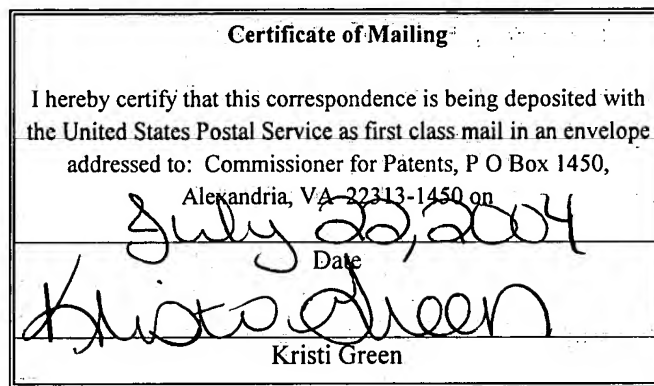 Certificate of Mailing
I hereby certify that this correspondence is being deposited with
the United States Postal Service as first class mail in an envelope
addressed to: Commissioner for Patents, P O Box 1450,
Alexandria, VA 22313-1450 on
July 22, 2004
Date
Kristi Green
Kristi Green